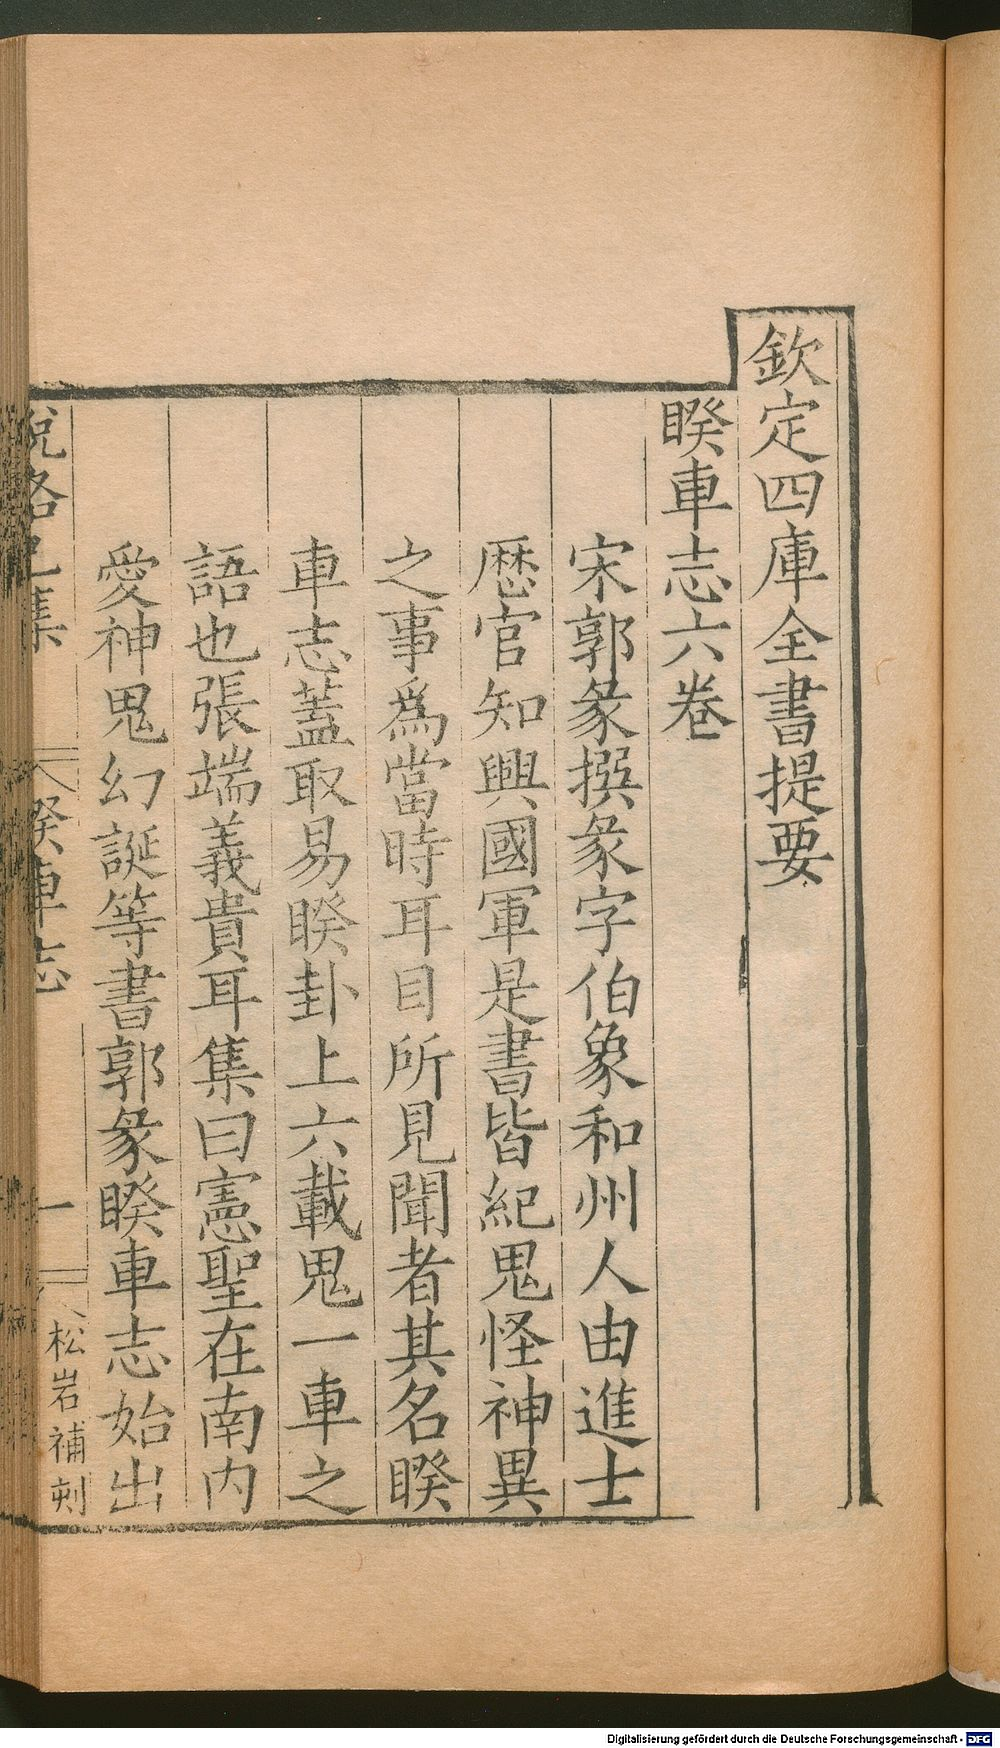 欽定四庫全書提要
睽車志六卷
宋郭彖撰彖字伯象和州人由進士
歷官知興國軍是書皆紀鬼怪神異
之事爲當時耳目所見聞者其名睽
車志蓋取易睽卦上六載鬼一車之
語也張端義貴耳集曰憲聖在南内
愛神鬼幻誕等書郭彖睽車志始出
睽車志
一
松岩補刻
Digitalisierung gefördert durch die Deutsche Forschungsgemeinschaft - DFG